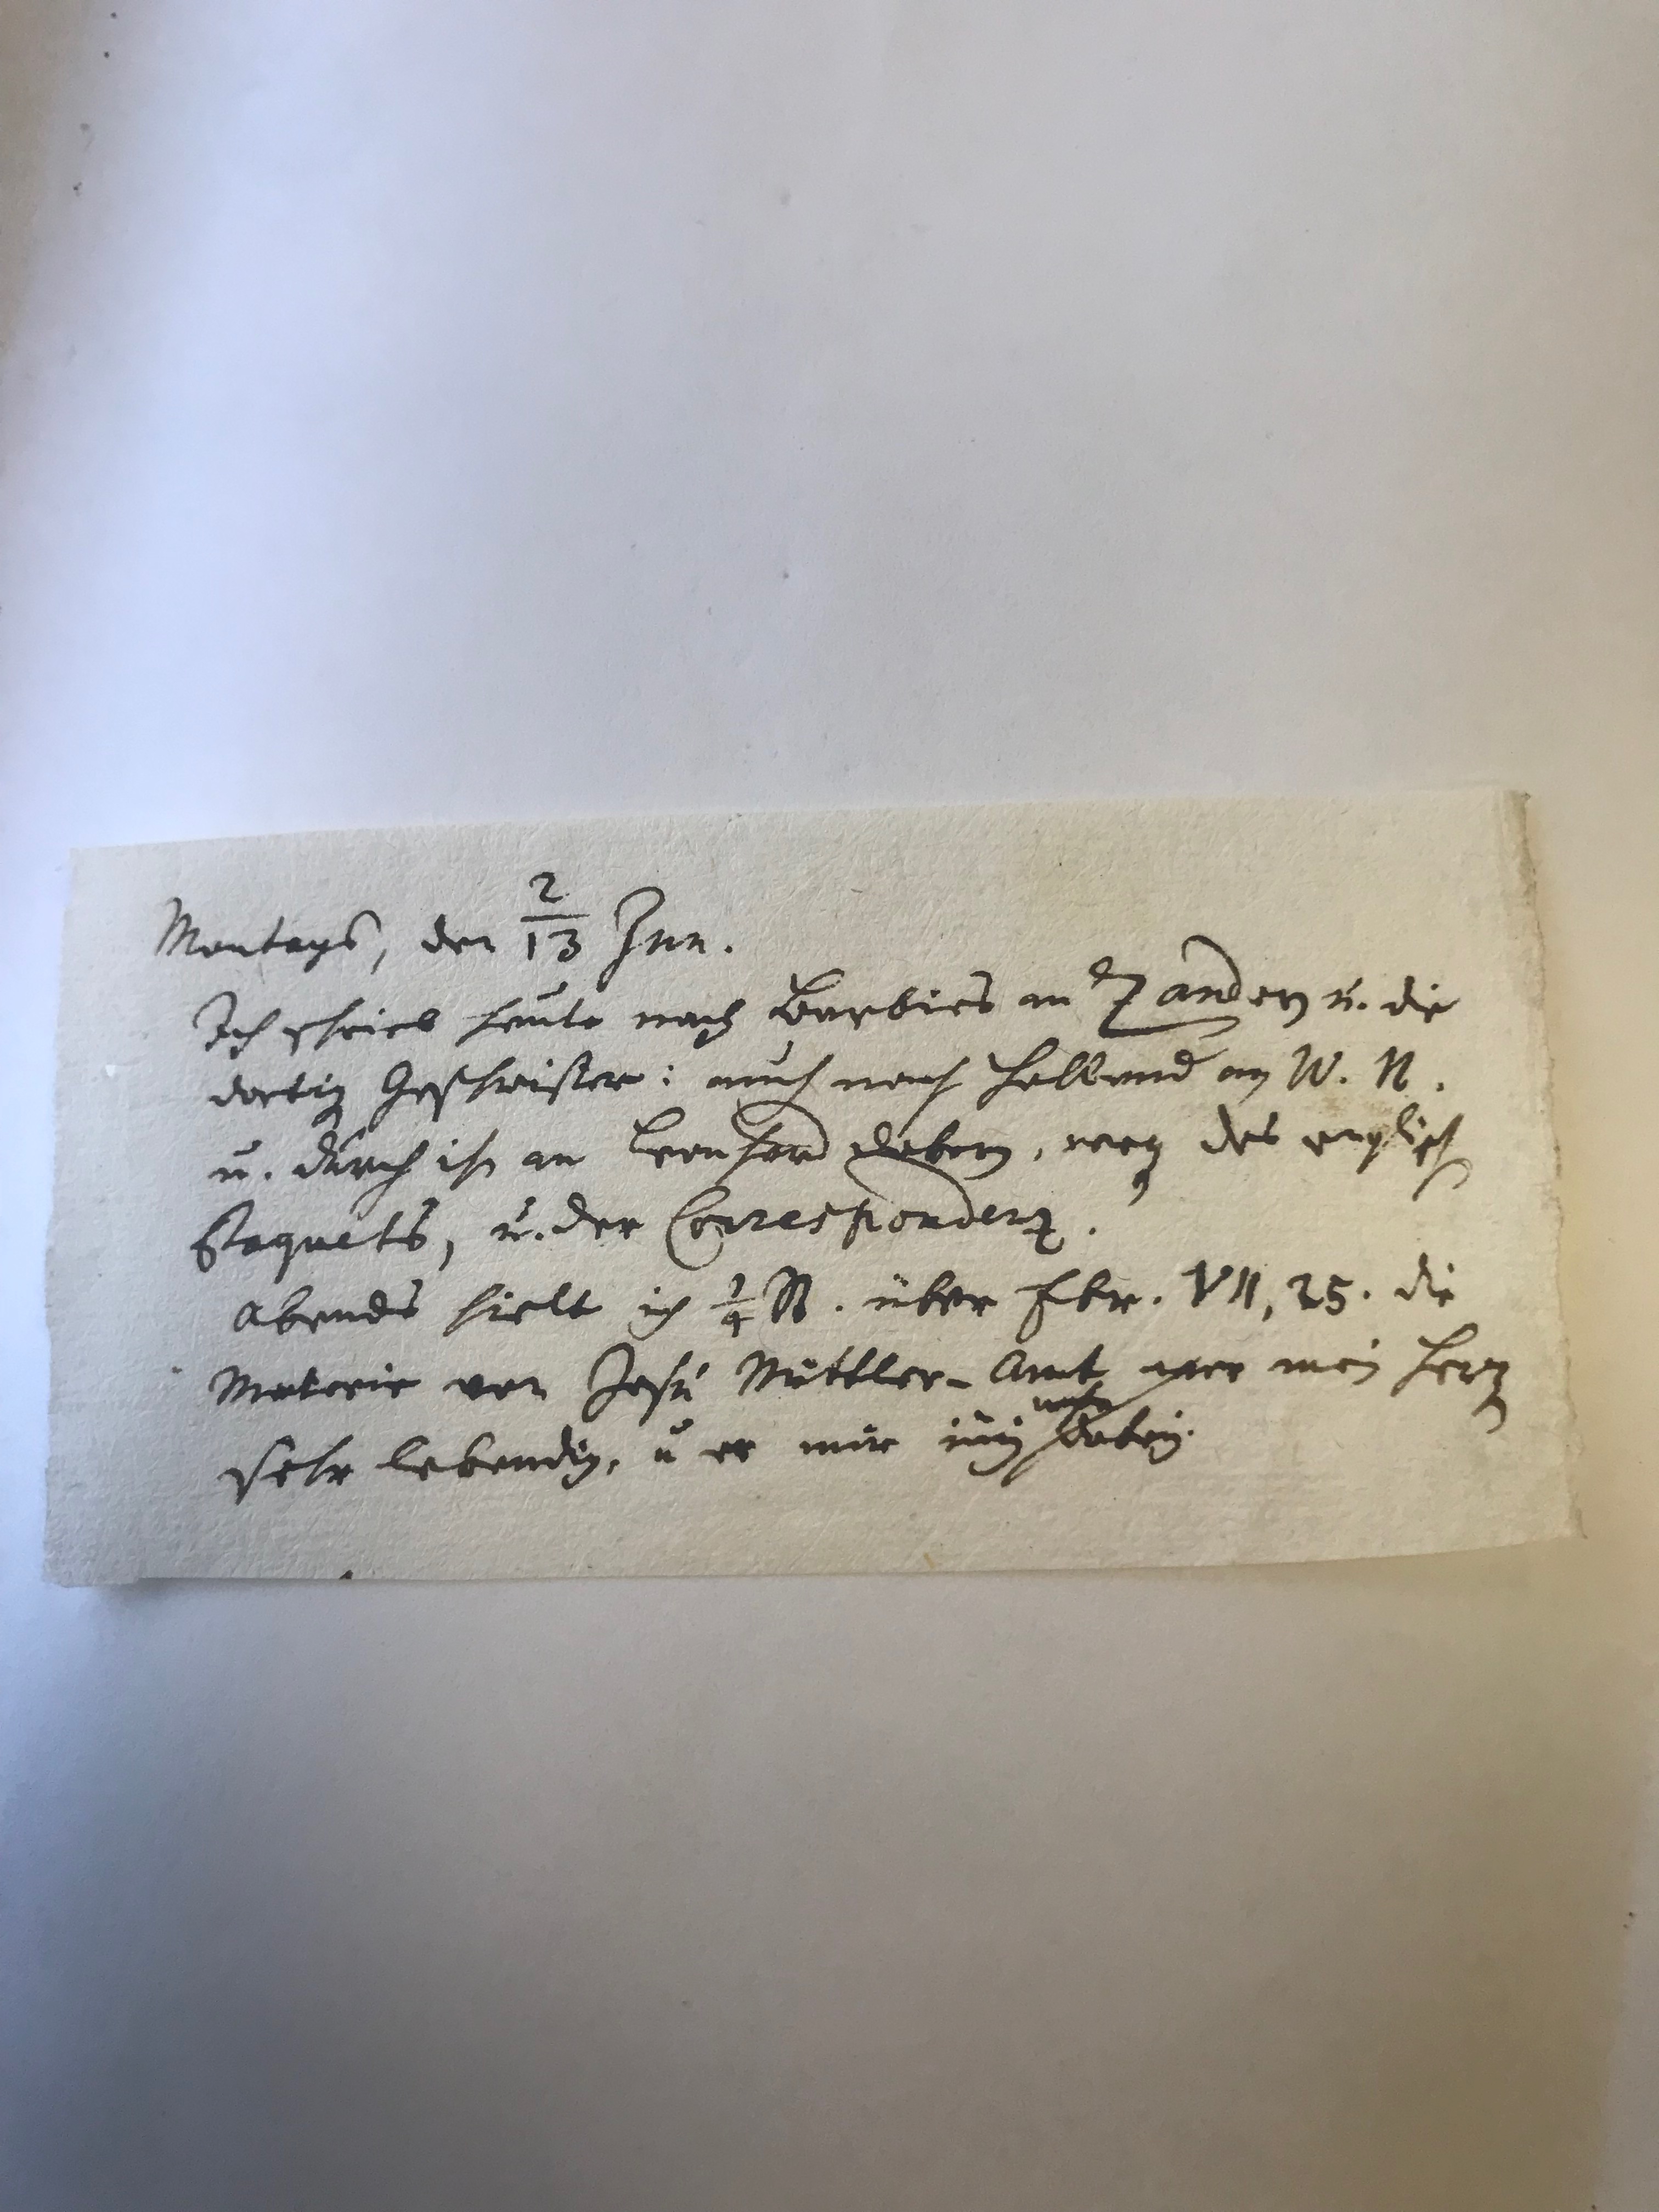 Montags, den 2/13 Jan.
Ich schrieb heute nach Barbies an Zandern u. die
dortig Geschwister: auch nach Holland an W. N.
u. durch ihn an Leonhard Dobern, weg des englisch
Paquets, u. der Correspondenz.
Abends hielt ich ¼ St. über Ebr. VII, 25. die
Materie von Jesu Mittler-Amt war mein Herz
sehr lebendig, u er mir nahe dabey.